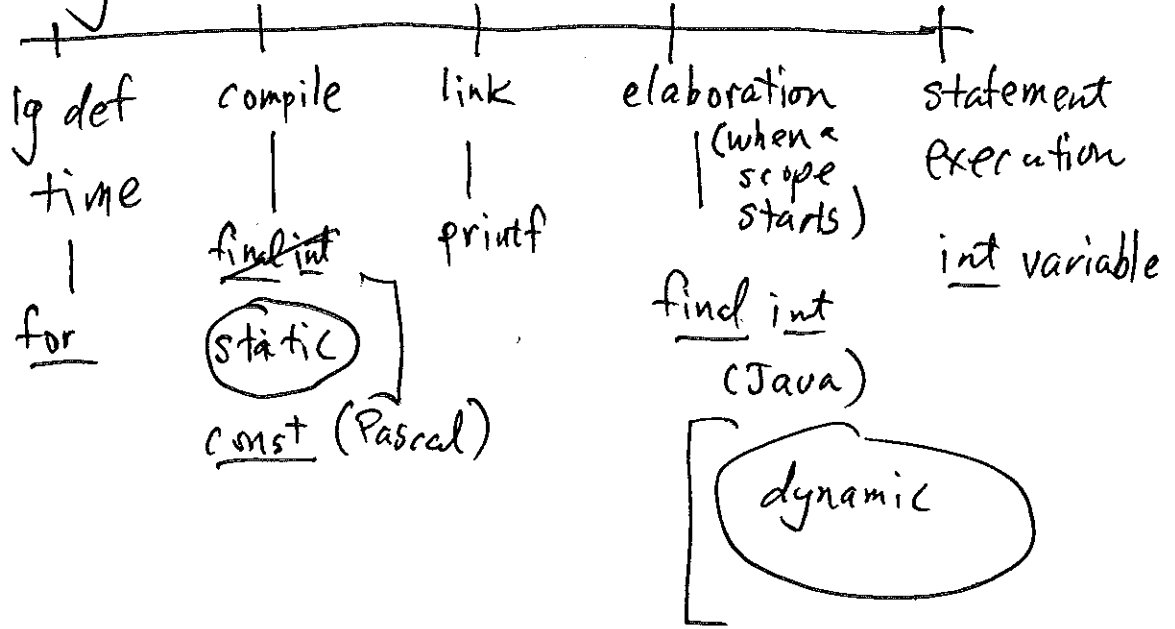 lg def
time
for
compile
final int
static
const (Pascal)
link
printf
elaboration
(when a
scope
starts)
final int
(Java)
dynamic
statement
execution
int variable